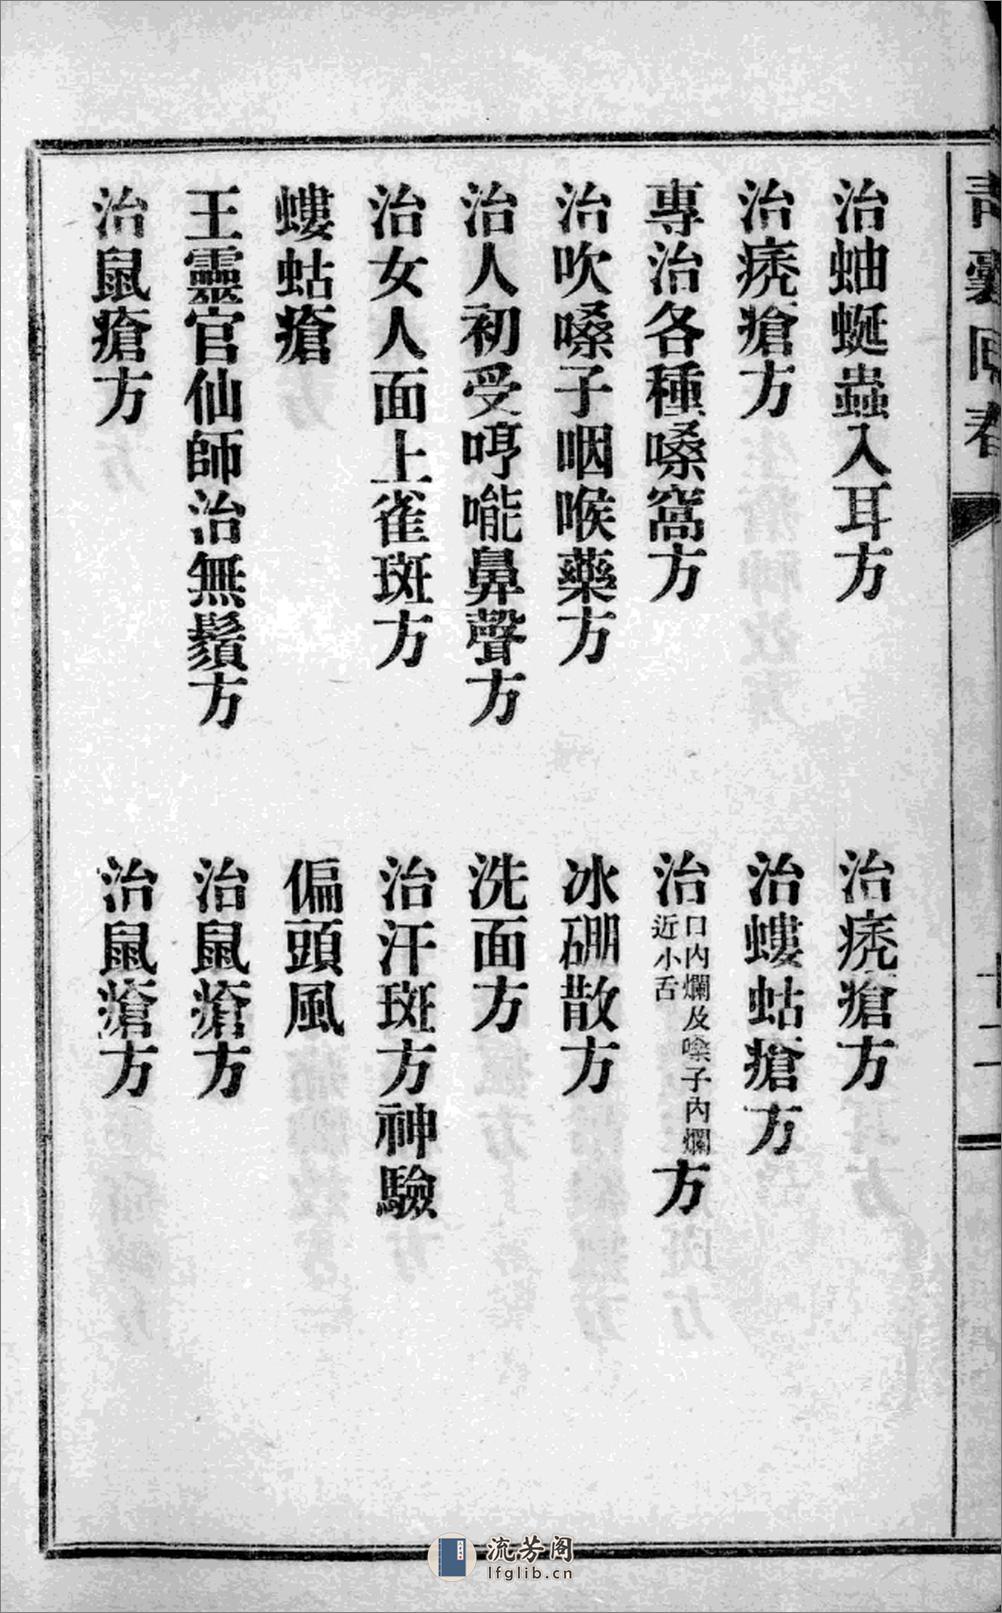 青囊回春
十二
治蚰蜒蟲入耳方
治痜瘡方
治痜瘡方
治螻蛄瘡方
專治各種嗓窩方
治口內爛及嗓子內爛近小舌方
治吹嗓子咽喉藥方
冰硼散方
治人初受哼嚨鼻聲方
洗面方
治女人面上雀斑方
治汗斑方神驗
螻蛄瘡
偏頭風
王靈官仙師治無鬚方
治鼠瘡方
治鼠瘡方
治鼠瘡方
流芳阁
lfglib.cn